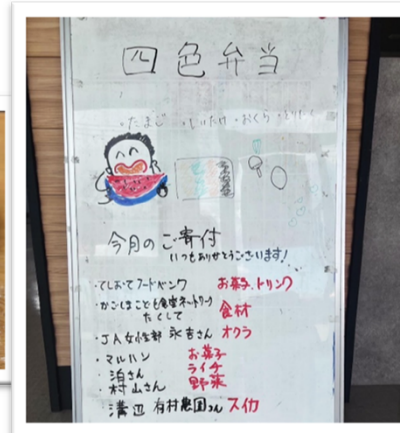 四色弁当
・たまご ・しいたけ ・おくら ・とりにく
今月のご寄付
いつもありがとうございます!
・てしおてフードバンク お菓子、ドリンク
・かごしまこども食堂ネットワーク
たくして 食材
・JA女性部 永吉さん オクラ
・マルハン お菓子
・泊さん ライチ
・村山さん 野菜
溝辺 有村農園さん スイカ